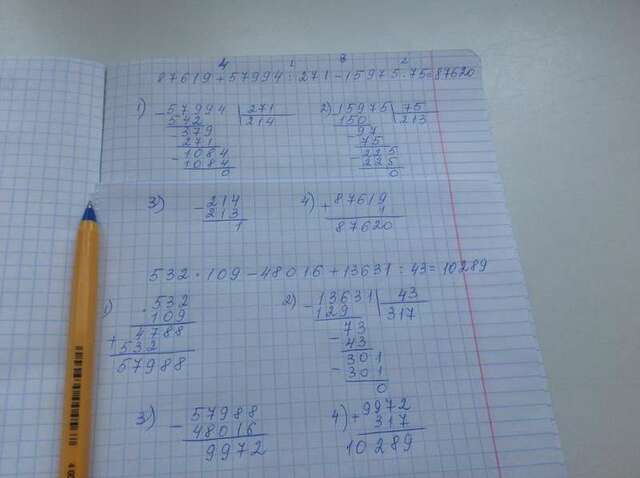 4 1 3 2
87619+57994:271-15975:75=87620
1) -57994 | 271
542 | 214
379
271
-1084
1084
0
2) 15975 | 75
150 | 213
-97
75
-225
225
0
3) -214
213
1
4) +87619
1
87620
532·109-48016+13631:43=10289
1) ·532
109
+4788
532
57988
2) -13631 | 43
129 | 317
-73
43
-301
301
0
3) -57988
48016
9972
4) +9972
317
10289